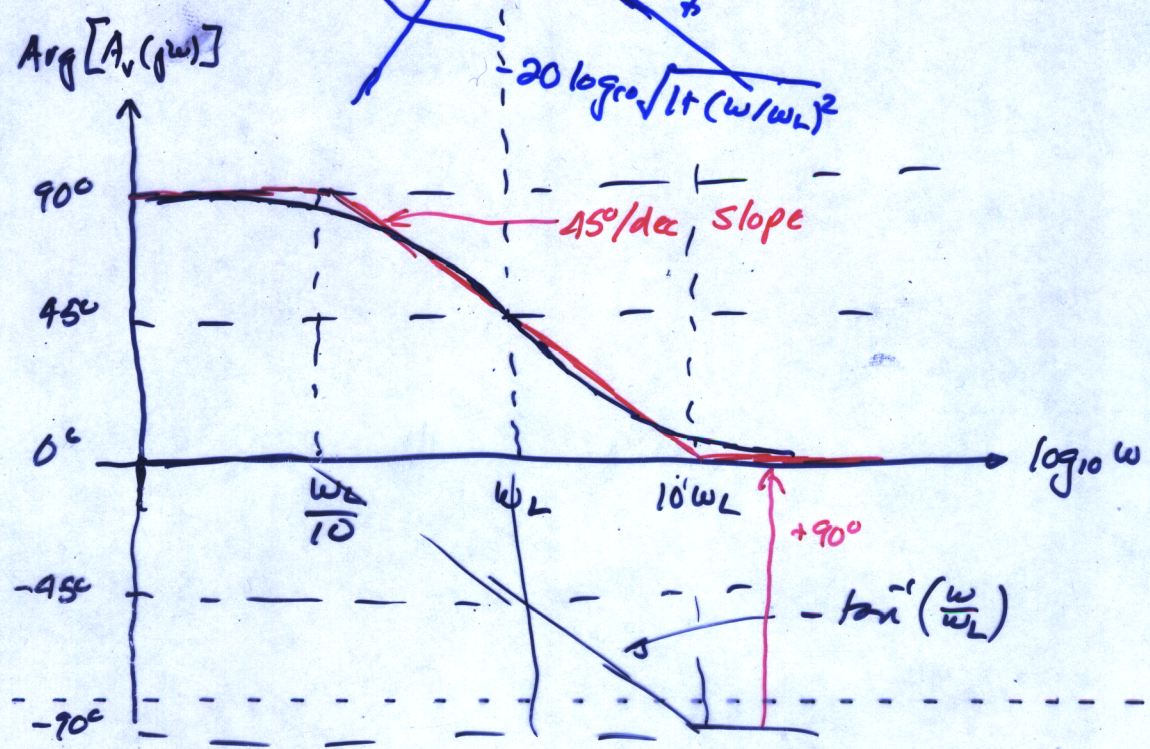 Arg[A_v(jω)]
-20 log₁₀√(1+(ω/ω_L)²)
90°
45°/dec slope
45°
0°
log₁₀ ω
ω_L/10
ω_L
10ω_L
+90°
-45°
- tan⁻¹(ω/ω_L)
-90°